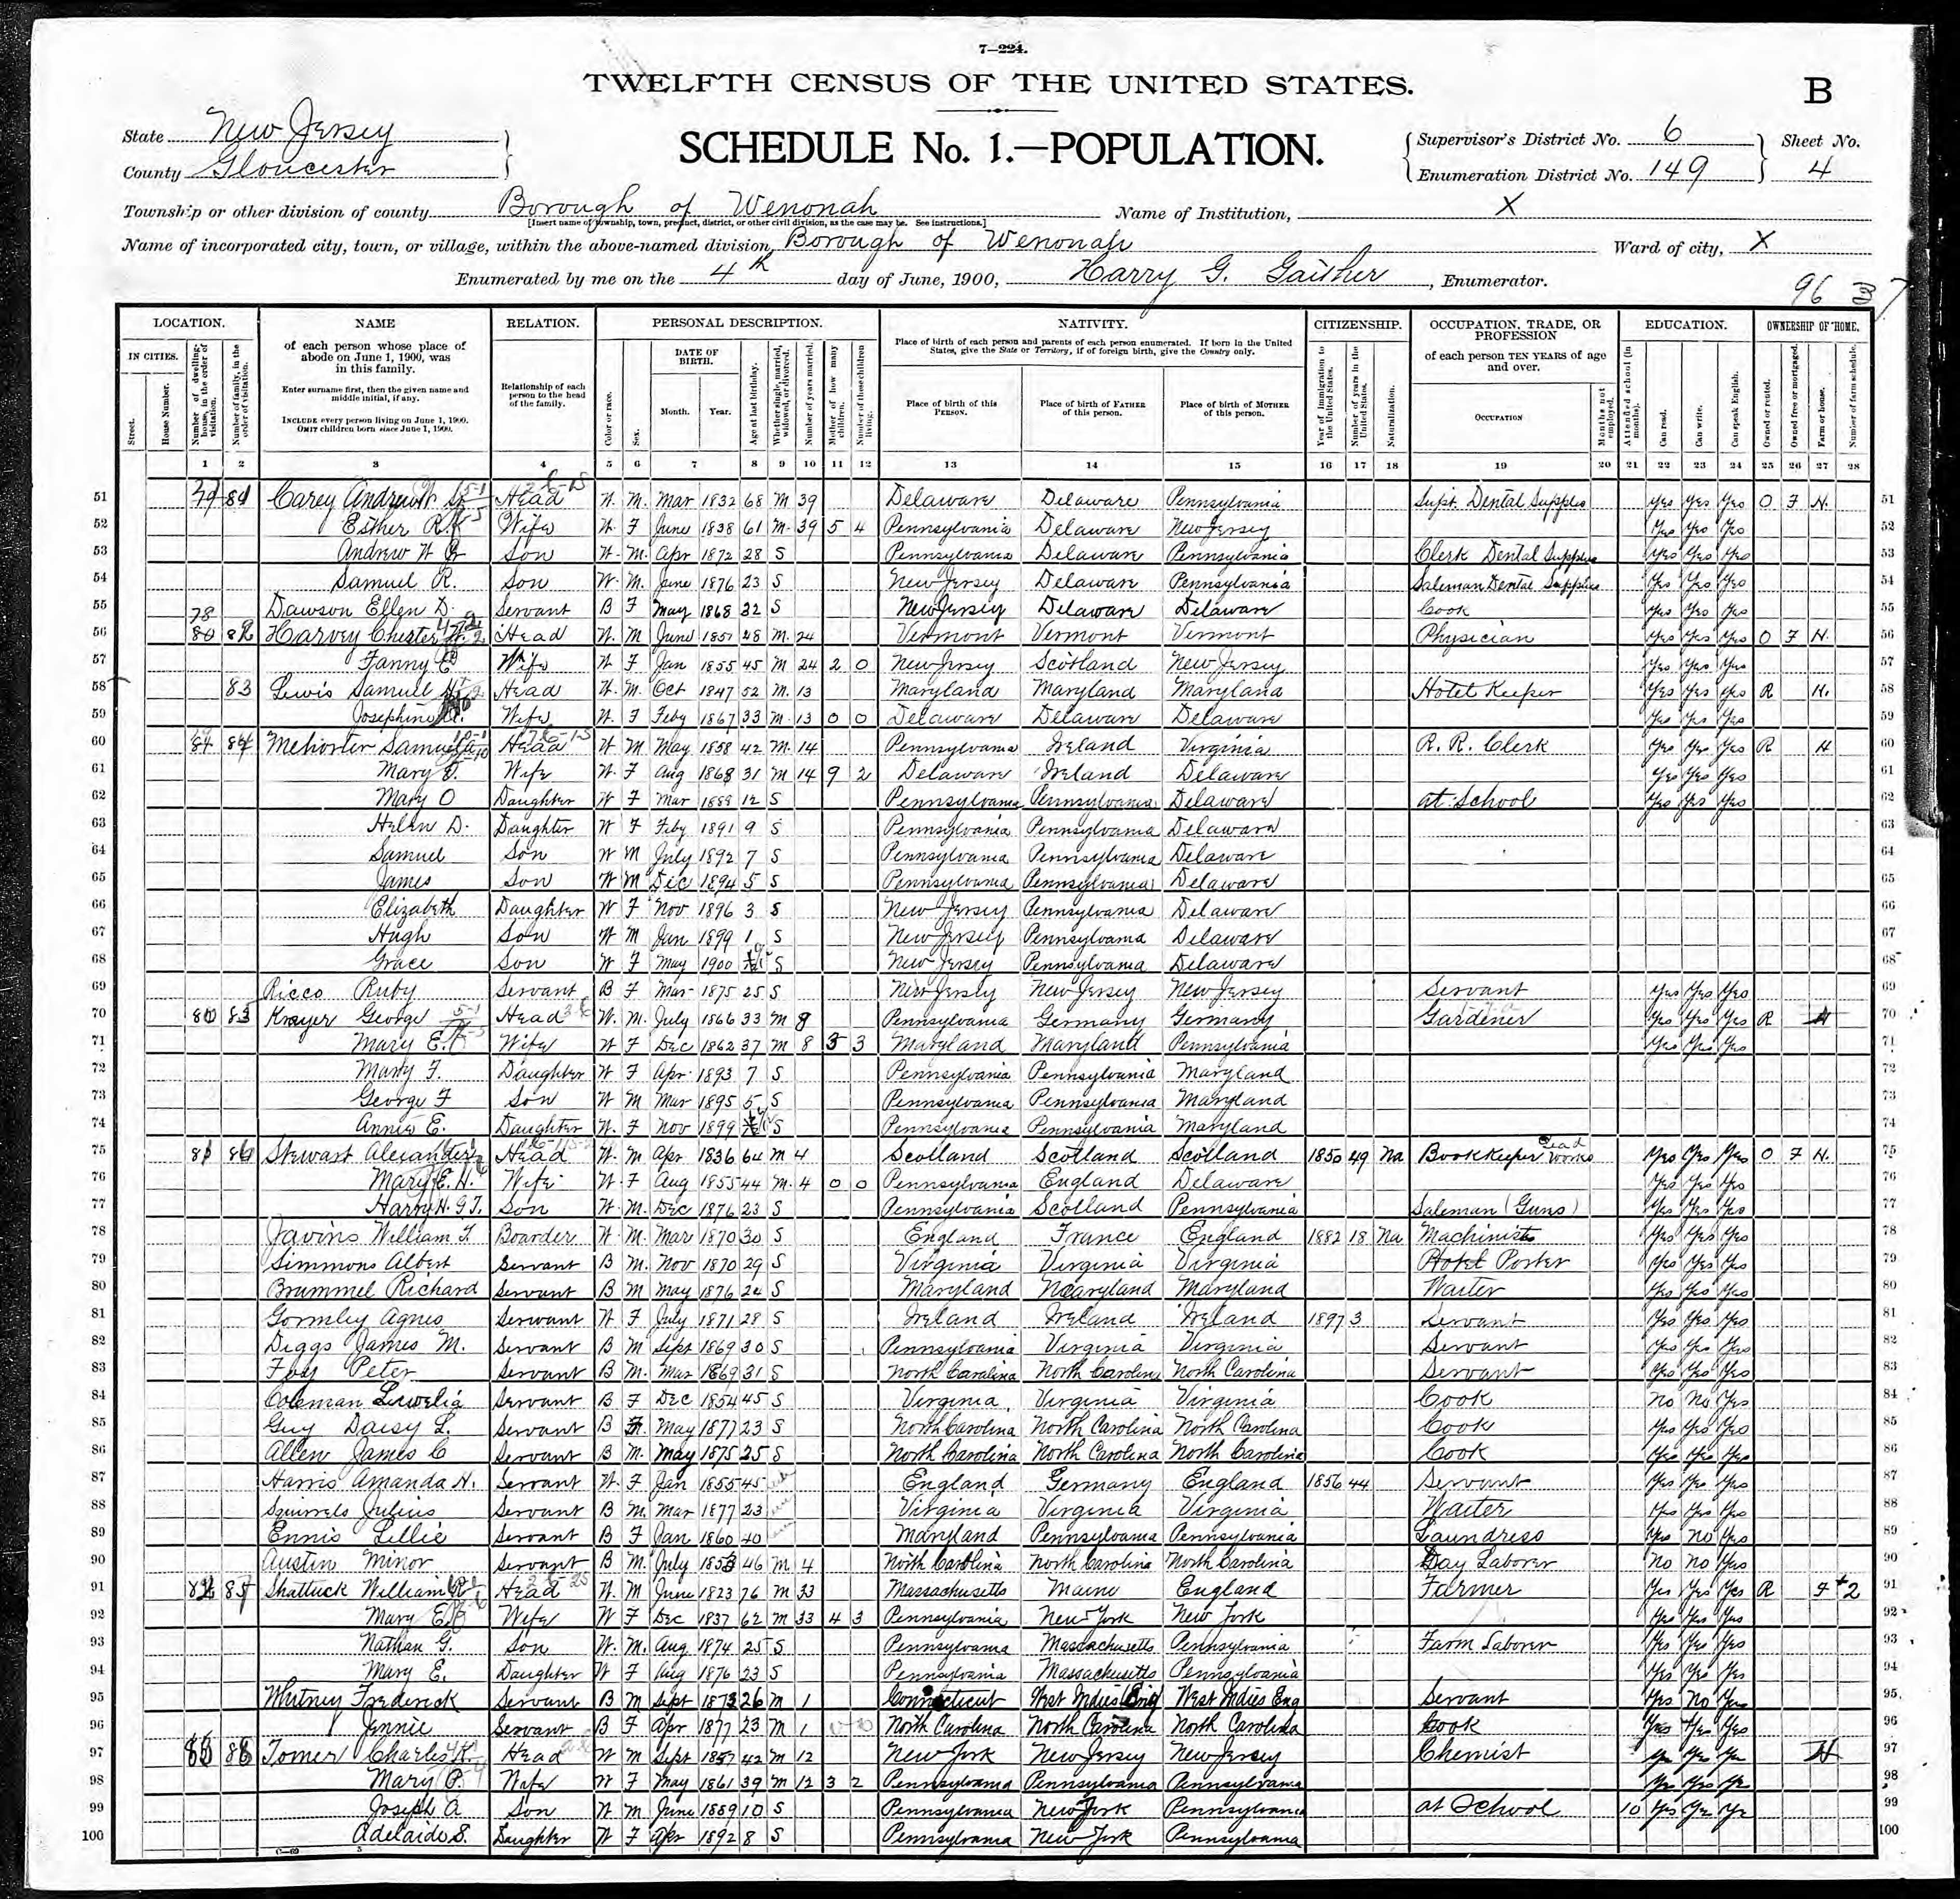 7—224.
TWELFTH CENSUS OF THE UNITED STATES.
B
State New Jersey
County Gloucester
SCHEDULE No. 1.—POPULATION.
Supervisor's District No. 6
Enumeration District No. 149
Sheet No.
4
Township or other division of county Borough of Wenonah Name of Institution, X
[Insert name of township, town, precinct, district, or other civil division, as the case may be. See instructions.]
Name of incorporated city, town, or village, within the above-named division, Borough of Wenonah Ward of city, X
Enumerated by me on the 4th day of June, 1900, Harry G. Gaither, Enumerator.
96
LOCATION. NAME RELATION. PERSONAL DESCRIPTION. NATIVITY. CITIZENSHIP. OCCUPATION, TRADE, OR PROFESSION EDUCATION. OWNERSHIP OF HOME.
IN CITIES. Street. House Number. Number of dwelling-house, in the order of visitation. Number of family, in the order of visitation.
of each person whose place of abode on June 1, 1900, was in this family.
Enter surname first, then the given name and middle initial, if any.
INCLUDE every person living on June 1, 1900. OMIT children born since June 1, 1900.
Relationship of each person to the head of the family.
Color or race. Sex. DATE OF BIRTH. Month. Year. Age at last birthday. Whether single, married, widowed, or divorced. Number of years married. Mother of how many children. Number of these children living.
Place of birth of each person and parents of each person enumerated. If born in the United States, give the State or Territory, if of foreign birth, give the Country only.
Place of birth of this PERSON. Place of birth of FATHER of this person. Place of birth of MOTHER of this person.
Year of immigration to the United States. Number of years in the United States. Naturalization.
of each person TEN YEARS of age and over.
OCCUPATION Months not employed.
Attended school (in months). Can read. Can write. Can speak English.
Owned or rented. Owned free or mortgaged. Farm or house. Number of farm schedule.
1 2 3 4 5 6 7 8 9 10 11 12 13 14 15 16 17 18 19 20 21 22 23 24 25 26 27 28
51 Carey Andrew Head W. M. Mar 1832 68 M 39 Delaware Delaware Pennsylvania Supt. Dental Supplies Yes Yes Yes O F H. 51
52 Esther R. Wife W F June 1838 61 M. 39 5 4 Pennsylvania Delaware New Jersey Yes Yes Yes 52
53 Andrew W Son W. M. Apr 1872 28 S Pennsylvania Delaware Pennsylvania Clerk Dental Supplies Yes Yes Yes 53
54 Samuel R. Son W. M. June 1876 23 S New Jersey Delaware Pennsylvania Saleman Dental Supplies Yes Yes Yes 54
55 Dawson Ellen D. Servant B F May 1868 32 S New Jersey Delaware Delaware Cook Yes Yes Yes 55
56 78 80 82 Harvey Chester Head W. M June 1851 48 M. 24 Vermont Vermont Vermont Physician Yes Yes Yes O F H. 56
57 Fanny C Wife W F Jan 1855 45 M 24 2 0 New Jersey Scotland New Jersey Yes Yes Yes 57
58 83 Lewis Samuel Head W. M. Oct 1847 52 M. 13 Maryland Maryland Maryland Hotel Keeper Yes Yes Yes R H. 58
59 Josephine Wife W. F Feby 1867 33 M. 13 0 0 Delaware Delaware Delaware Yes Yes Yes 59
60 84 Samuel Head W M. May 1858 42 M. 14 Pennsylvania Ireland Virginia R. R. Clerk Yes Yes Yes R H 60
61 Mary Wife W. F Aug 1868 31 M 14 9 2 Delaware Ireland Delaware Yes Yes Yes 61
62 Mary O Daughter W F Mar 1888 12 S Pennsylvania Pennsylvania Delaware at School Yes Yes Yes 62
63 Helen D. Daughter W F Feby 1891 9 S Pennsylvania Pennsylvania Delaware 63
64 Samuel Son W M July 1892 7 S Pennsylvania Pennsylvania Delaware 64
65 James Son W M Dec 1894 5 S Pennsylvania Pennsylvania Delaware 65
66 Elizabeth Daughter W F Nov 1896 3 S New Jersey Pennsylvania Delaware 66
67 Hugh Son W M Jan 1899 1 S New Jersey Pennsylvania Delaware 67
68 Grace Son W F May 1900 S New Jersey Pennsylvania Delaware 68
69 Ricco Ruby Servant B F Mar 1875 25 S New Jersey New Jersey New Jersey Servant Yes Yes Yes 69
70 80 85 Krayer George Head W. M. July 1866 33 M 8 Pennsylvania Germany Germany Gardener Yes Yes Yes R H 70
71 Mary E. Wife W F Dec 1862 37 M 8 3 3 Maryland Maryland Pennsylvania Yes Yes Yes 71
72 Mary F. Daughter W F Apr 1893 7 S Pennsylvania Pennsylvania Maryland 72
73 George F Son W M Mar 1895 5 S Pennsylvania Pennsylvania Maryland 73
74 Annie E. Daughter W. F Nov 1899 S Pennsylvania Pennsylvania Maryland 74
75 81 86 Stewart Alexander Head W. M Apr 1836 64 M 4 Scotland Scotland Scotland 1850 49 Na Bookkeeper Lead Works Yes Yes Yes O F H. 75
76 Mary E. H. Wife W. F Aug 1855 44 M. 4 0 0 Pennsylvania England Delaware Yes Yes Yes 76
77 Harry H. G. T. Son W. M. Dec 1876 23 S Pennsylvania Scotland Pennsylvania Saleman (Guns) Yes Yes Yes 77
78 Javins William T. Boarder W. M. Mar 1870 30 S England France England 1882 18 Na Machinist Yes Yes Yes 78
79 Simmons Albert Servant B M. Nov 1870 29 S Virginia Virginia Virginia Hotel Porter Yes Yes Yes 79
80 Brummel Richard Servant B M May 1876 24 S Maryland Maryland Maryland Waiter Yes Yes Yes 80
81 Gormley Agnes Servant W F July 1871 28 S Ireland Ireland Ireland 1897 3 Servant Yes Yes Yes 81
82 Diggs James M. Servant B M Sept 1869 30 S Pennsylvania Virginia Virginia Servant Yes Yes Yes 82
83 Foy Peter Servant B M. Mar 1869 31 S North Carolina North Carolina North Carolina Servant Yes Yes Yes 83
84 Coleman Servant B F Dec 1854 45 S Virginia Virginia Virginia Cook No No Yes 84
85 Guy Daisy L. Servant B F. May 1877 23 S North Carolina North Carolina North Carolina Cook Yes Yes Yes 85
86 Allen James C Servant B M. May 1875 25 S North Carolina North Carolina North Carolina Cook Yes Yes Yes 86
87 Harris Amanda H. Servant W. F Jan 1855 45 England Germany England 1856 44 Servant Yes Yes Yes 87
88 Squirrels Julius Servant B M. Mar 1877 23 Virginia Virginia Virginia Waiter Yes Yes Yes 88
89 Ennis Lillie Servant B F Jan 1860 40 Maryland Pennsylvania Pennsylvania Laundress Yes No Yes 89
90 Austin Minor Servant B M. July 1853 46 M. 4 North Carolina North Carolina North Carolina Day Laborer No No Yes 90
91 82 87 Shattuck William Head W. M June 1823 76 M 33 Massachusetts Maine England Farmer Yes Yes Yes R F 2 91
92 Mary E. Wife W F Dec 1837 62 M 33 4 3 Pennsylvania New York New York Yes Yes Yes 92
93 Nathan G. Son W. M. Aug 1874 25 S Pennsylvania Massachusetts Pennsylvania Farm Laborer Yes Yes Yes 93
94 Mary E. Daughter W F Aug 1876 23 S Pennsylvania Massachusetts Pennsylvania Yes Yes Yes 94
95 Whitney Frederick Servant B M Sept 1873 26 M 1 Connecticut West Indies (Eng) West Indies Eng Servant Yes No Yes 95
96 Jennie Servant B F Apr 1877 23 M 1 North Carolina North Carolina North Carolina Cook Yes Yes Yes 96
97 83 88 Tomer Charles K. Head W M Sept 1857 42 M 12 New York New Jersey New Jersey Chemist Yes Yes Yes H 97
98 Mary P. Wife W F May 1861 39 M 12 3 2 Pennsylvania Pennsylvania Pennsylvania Yes Yes Yes 98
99 Joseph A Son W. M June 1889 10 S Pennsylvania New York Pennsylvania at School 10 Yes Yes Yes 99
100 Adelaide S. Daughter W F Apr 1892 8 S Pennsylvania New York Pennsylvania 100